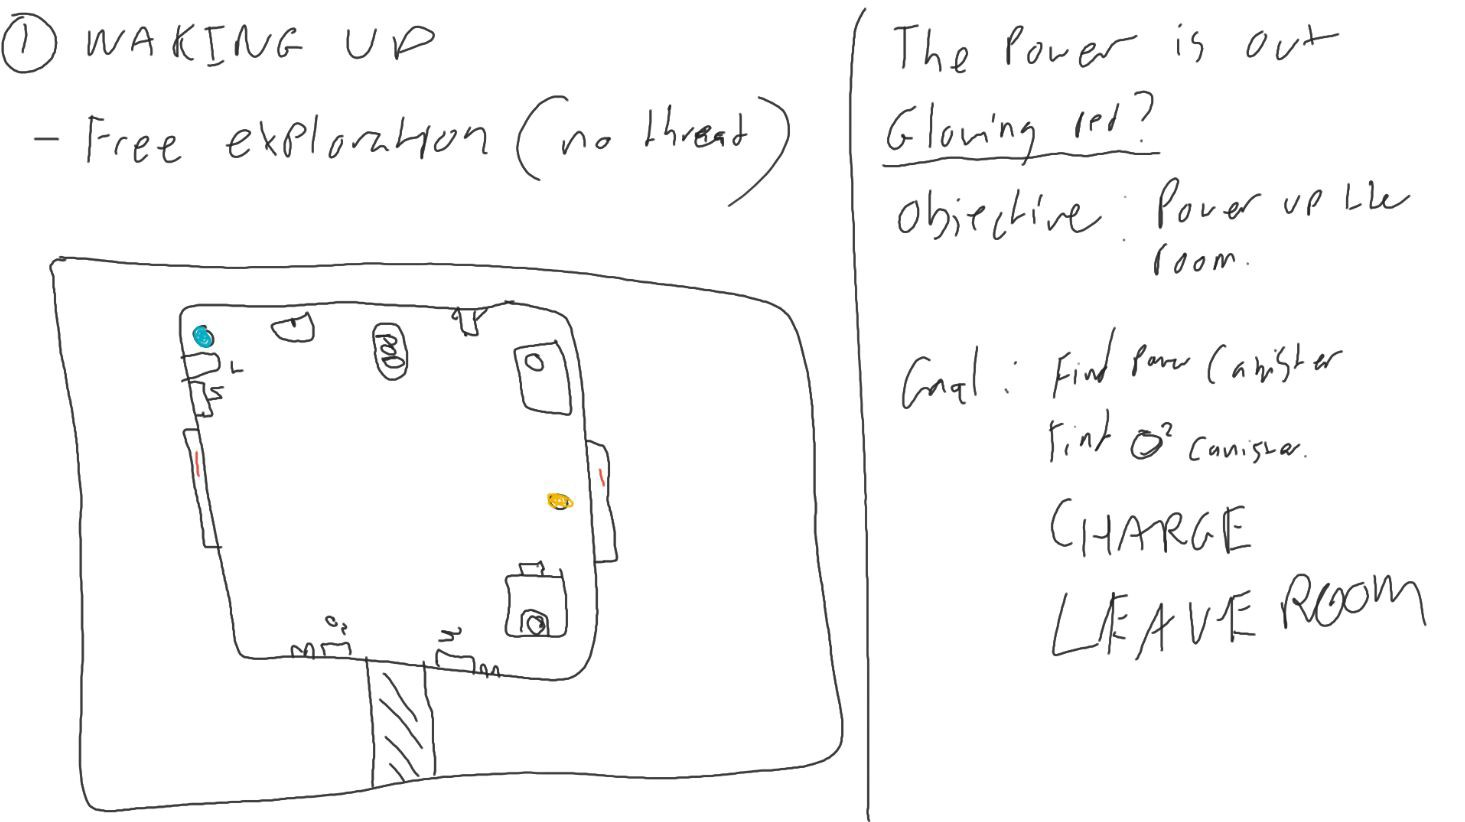 ① WAKING UP
- Free exploration (no threat)
POD
L
O₂
The Power is out
Glowing red?
Objective: Power up the
room.
Goal: Find Power Canister
Find O² Canister.
CHARGE
LEAVE ROOM